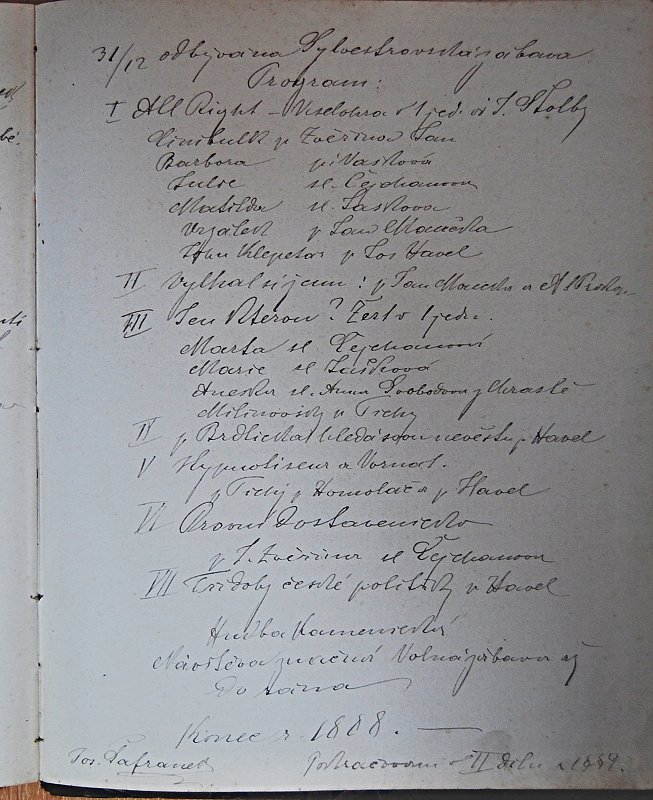 31/12 odbývána Sylvestrovská zábava
Program:
I All Right – Veselohra v 1 jed. od J. Štolby
Cinibulk p Zvěřina Jan
Barbora pí Vašková
Julie sl. Čejchanova
Matilda sl. Laskova
Vrzálek p Jan Manďka
Klepetař p Jos Havel
II Vylhal si jmění: p Jan a Al Prokop
III Ten kterou? Žert v 1 jedn.
Marta sl. Čejchanová
Marie sl. Lašková
Anežka sl. Anna Svobodova z Chrastě
Milínovský p Tichý
IV p Brdlička hledá sobě nevěstu p Havel
V Hypnotiseur a
p Tichý p Homoláč a p Havel
VI První Dostaveníčko
p J. Zvěřina sl Čejchanova
VII Tři doby české politiky p Havel
Hudba Kamenická
Návštěva značná Volná zábava až
do rána
Konec r. 1888.
Jos. Šafránek Pokračování v II dílu r 1889.